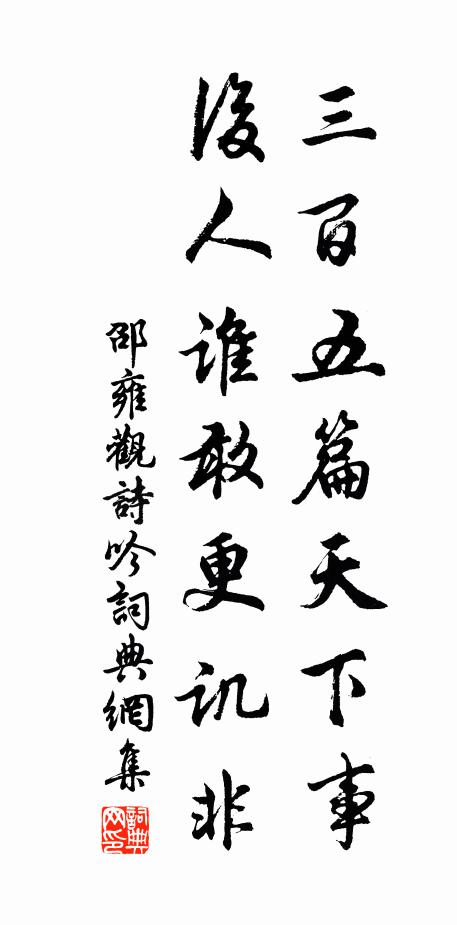 三百五篇天下事
後人誰敢更讥非
邵雍觀詩吟詞典網集
詞典網印